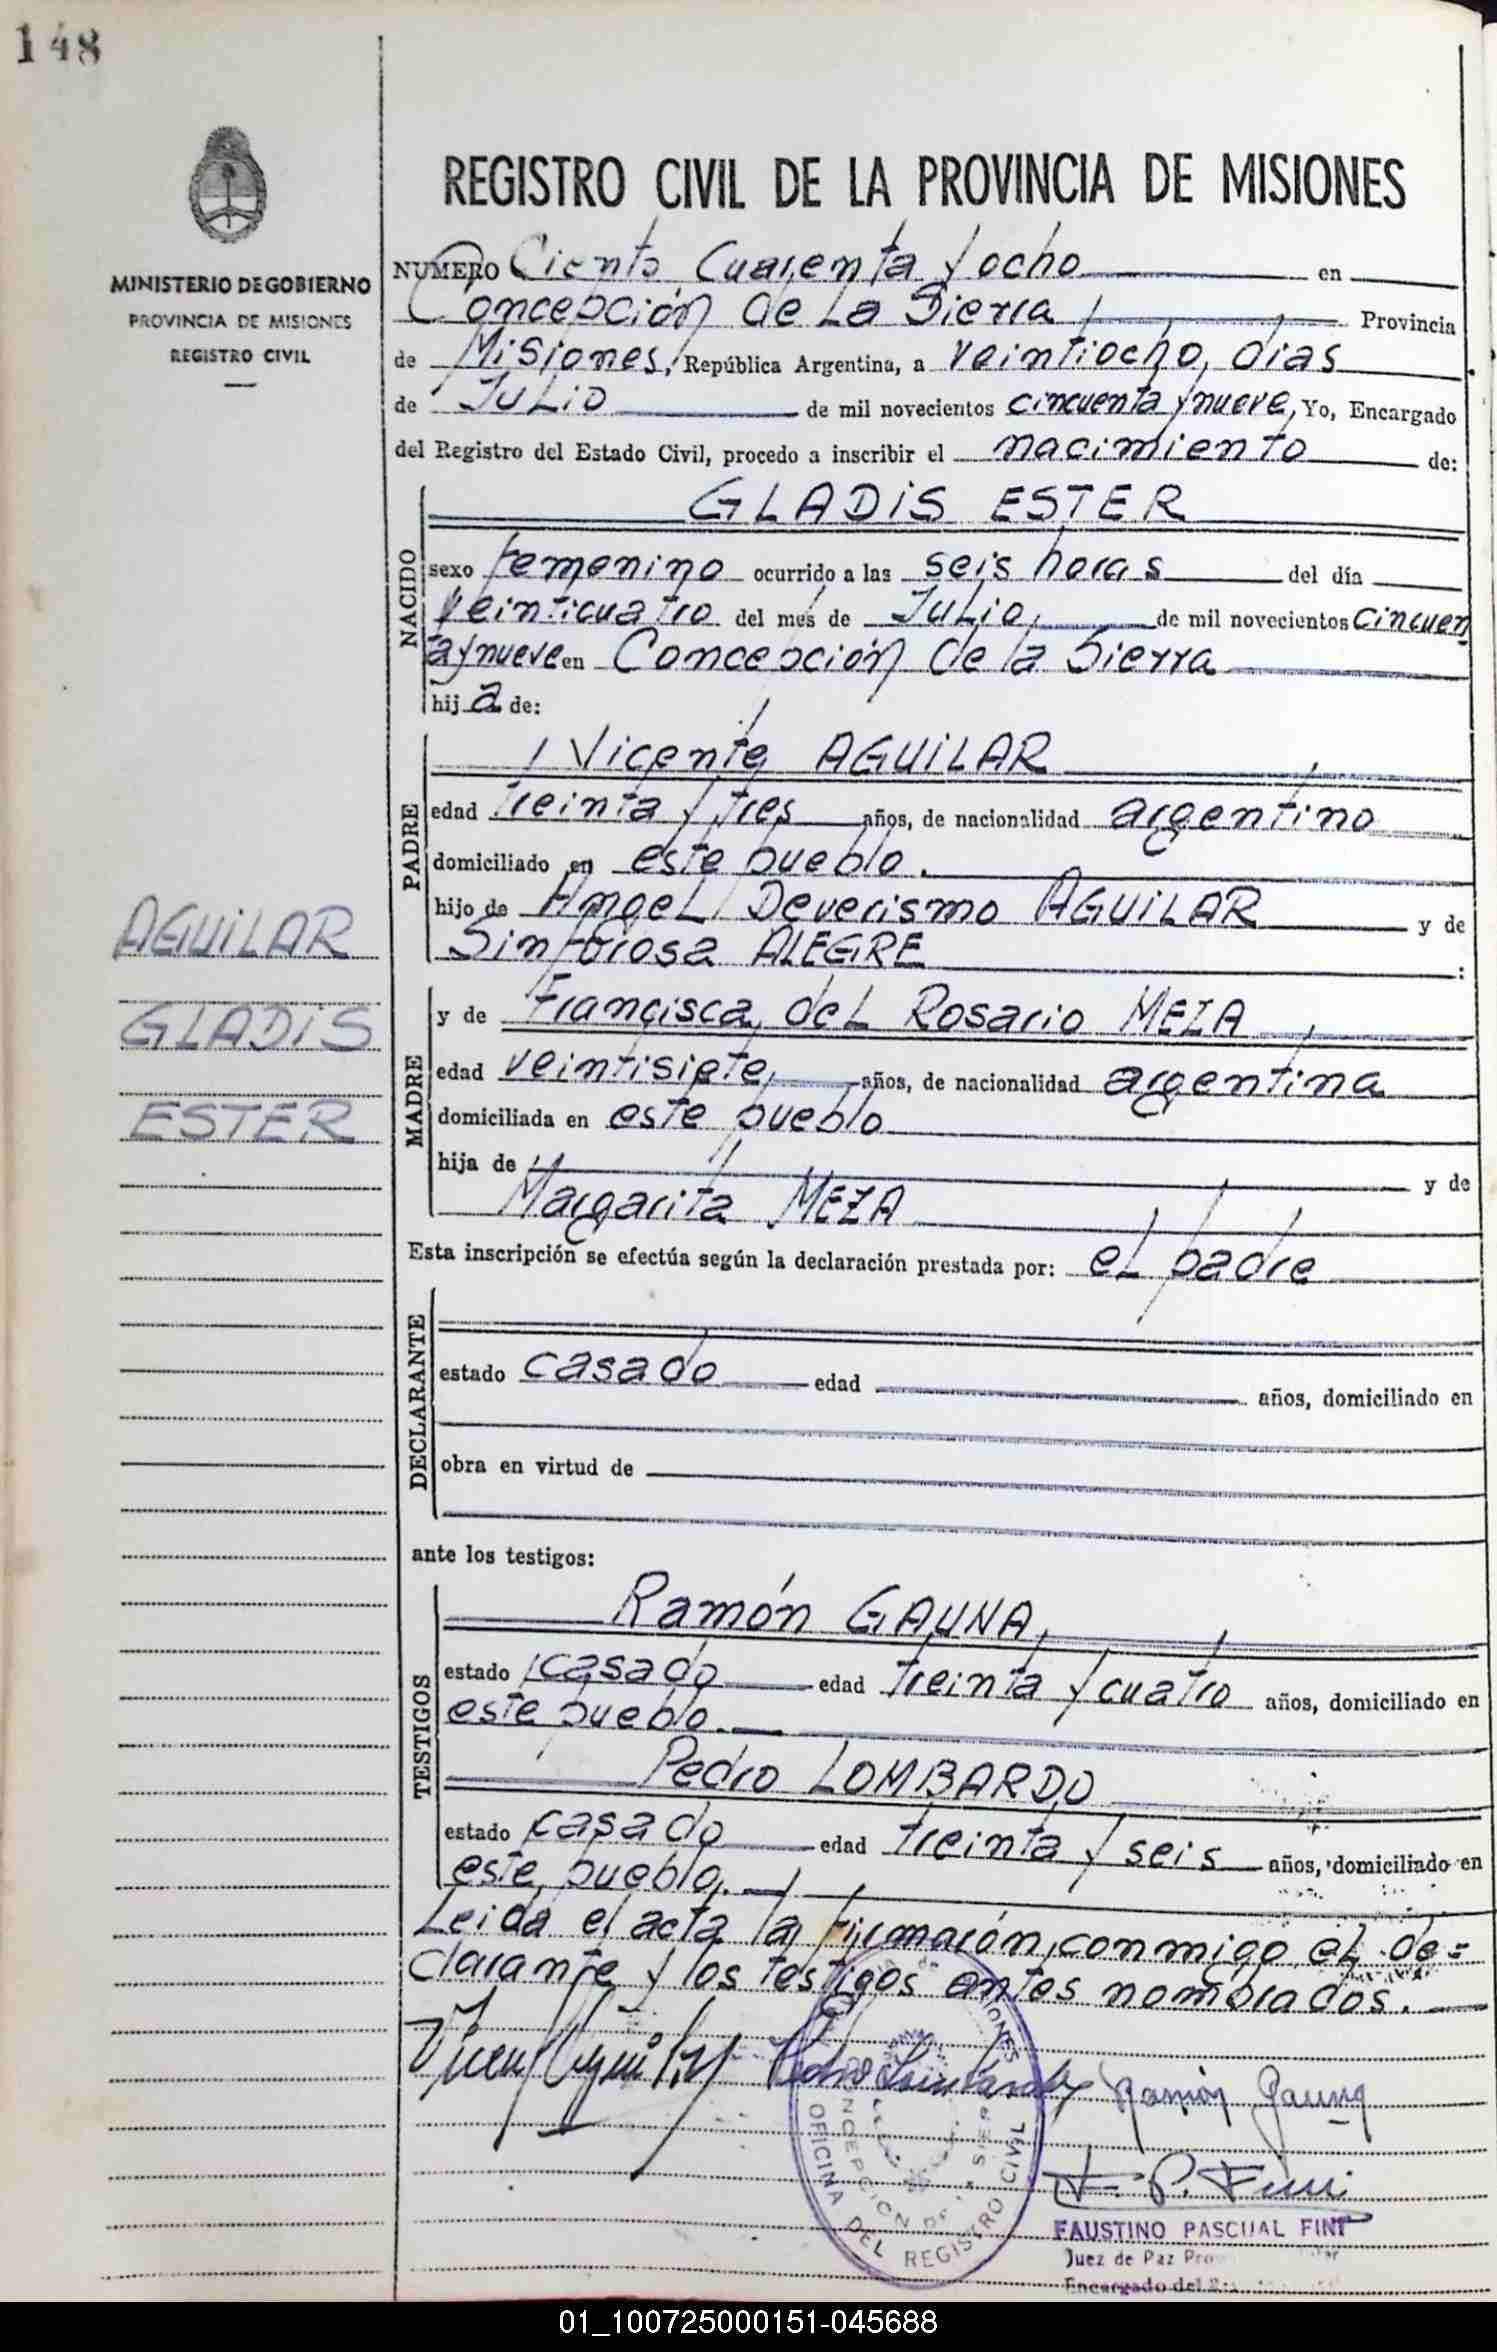 148
MINISTERIO DE GOBIERNO
PROVINCIA DE MISIONES
REGISTRO CIVIL
REGISTRO CIVIL DE LA PROVINCIA DE MISIONES
NUMERO Ciento Cuarenta y ocho en
Concepción de La Sierra Provincia
de Misiones, República Argentina, a veintiocho, dias
de JULio de mil novecientos cincuenta y nueve, Yo, Encargado
del Registro del Estado Civil, procedo a inscribir el nacimiento de:
NACIDO
GLADiS ESTER
sexo femenino ocurrido a las seis horas del día
veinticuatro del més de JuLio, de mil novecientos cincuen
ta y nueve en Concepción de la Sierra
hij a de:
PADRE
Vicente AGUiLAR
edad treinta y tres años, de nacionalidad argentino
domiciliado en este pueblo.
hijo de AngeL Deverismo AGUiLAR y de
Sinforosa ALEGRE :
MADRE
y de Francisca deL Rosario MEZA
edad veintisiete, años, de nacionalidad argentina
domiciliada en este pueblo
hija de y de
Margarita MEZA
Esta inscripción se efectúa según la declaración prestada por: eL padre
DECLARANTE
estado casado edad años, domiciliado en
obra en virtud de
ante los testigos:
TESTIGOS
Ramón GAUNA,
estado casado edad treinta y cuatro años, domiciliado en
este pueblo.
Pedro LOMBARDO
estado casado edad treinta y seis años, domiciliado en
este pueblo.
Leida el acta la firmarón, conmigo eL de=
clarante y los testigos antes nombrados.
AGUiLAR
GLADiS
ESTER
Vicen Aguilar Pedro Lombardo Ramón Gauna
OFICINA DEL REGISTRO CIVIL
CONCEPCION DE LA SIERRA
F. P. Fini
FAUSTINO PASCUAL FINI
Juez de Paz
Encargado del
01_100725000151-045688